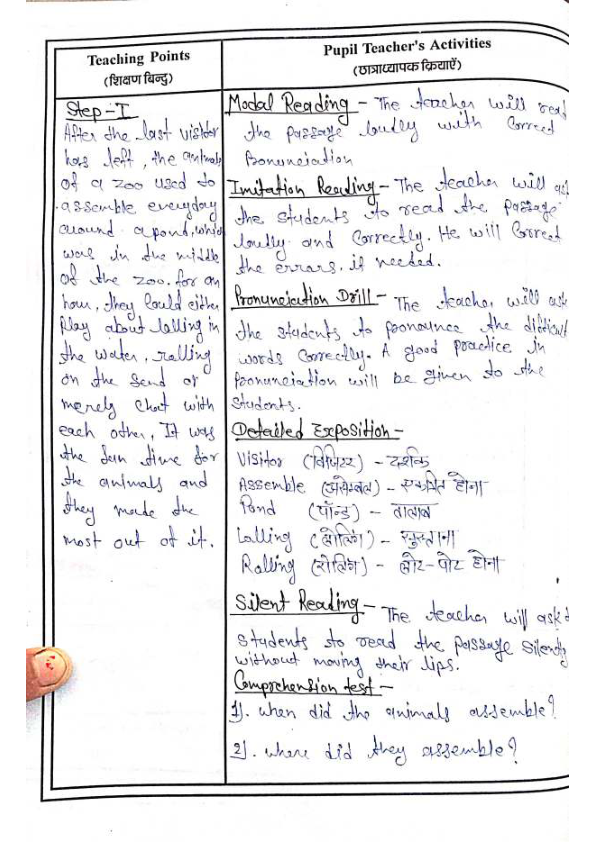 Teaching Points
(शिक्षण बिन्दु)
Step-I
After the last visitor
has left, the animals
of a zoo used to
assemble everyday
around a pond, which
was in the middle
of the zoo. for an
hour, they could either
Play about lalling in
the water, ralling
on the Send or
merely chat with
each other, It was
the fun time for
the animals and
they made the
most out of it.
Pupil Teacher's Activities
(छात्राध्यापक क्रियाएँ)
Modal Reading - The teacher will read
the passage loudly with Correct
Pronunciation
Imitation Reading - The teacher will ask
the students to read the passage
loudly and Correctly. He will Correct
the errars, if needed.
Pronunciation Drill - The teacher will ask
the students to pronounce the difficult
words Correctly. A good practice in
Pronunciation will be given to the
Students.
Detailed Exposition -
Visitor (विजिटर) - दर्शक
Assemble (असेम्बल) - एकत्रित होना
Pond (पॉन्ड) - तालाब
Lalling (लोलिंग) - सुस्ताना
Ralling (रोलिंग) - लोट-पोट होना
Silent Reading - The teacher will ask
Students to read the passage silently
without moving their lips.
Comprehension test -
1). when did the animals assemble?
2). where did they assemble?